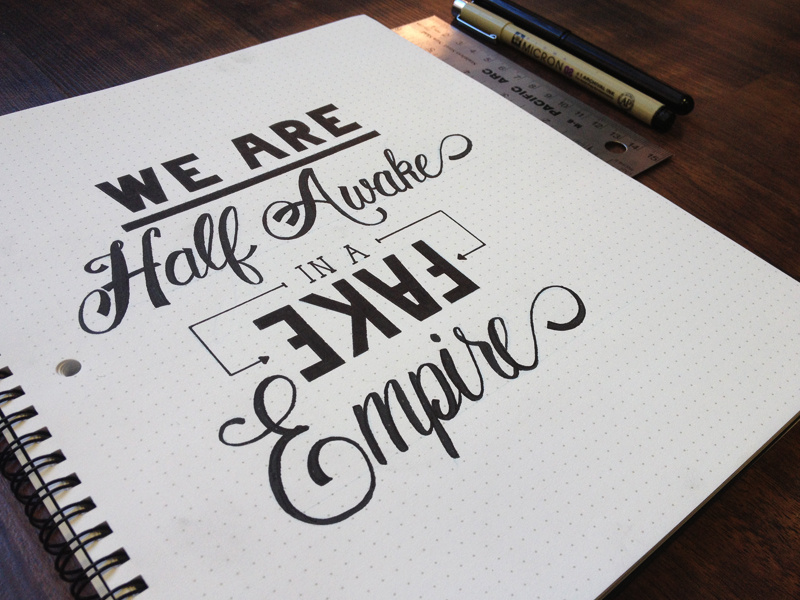 WE ARE
Half Awake
IN A
FAKE
Empire
MICRON
PACIFIC ARC